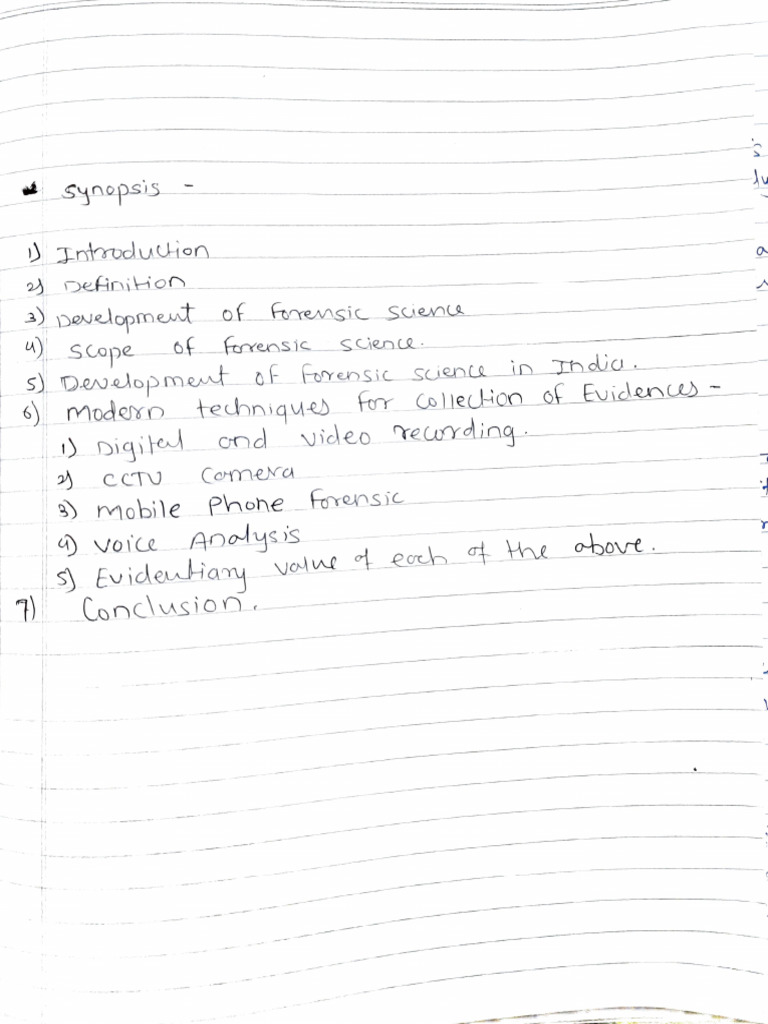 * Synopsis -
1) Introduction
2) Definition
3) Development of Forensic science
4) Scope of Forensic science.
5) Development of Forensic science in India.
6) Modern techniques for collection of Evidences -
1) Digital and video recording.
2) CCTV Camera
3) Mobile Phone Forensic
4) Voice Analysis
5) Evidentiary value of each of the above.
7) Conclusion.